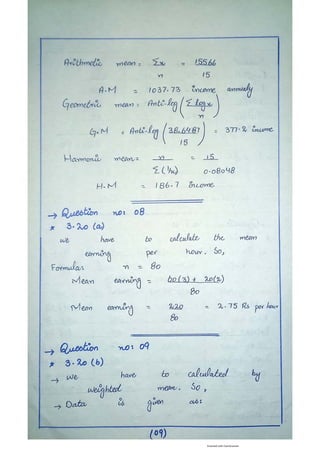 Arithmetic mean = Σx = 15566
n 15
A.M = 1037.73 income annually
Geometric mean = Anti-log (Σ log x)
n
G.M = Anti-log (38.6487) = 377.2 income
15
Harmonic mean = n = 15
Σ(1/x) 0.08048
H.M = 186.7 income
→ Question no: 08
* 3.20 (a)
we have to calculate the mean
earning per hour. So,
Formulas n = 80
Mean earning = 60(3) + 20(2)
80
Mean earning = 220 = 2.75 Rs per hour
80
→ Question no: 09
* 3.20 (b)
→ we have to calculated by
weighted mean. So,
→ Data is given as:
(09)
Scanned with CamScanner